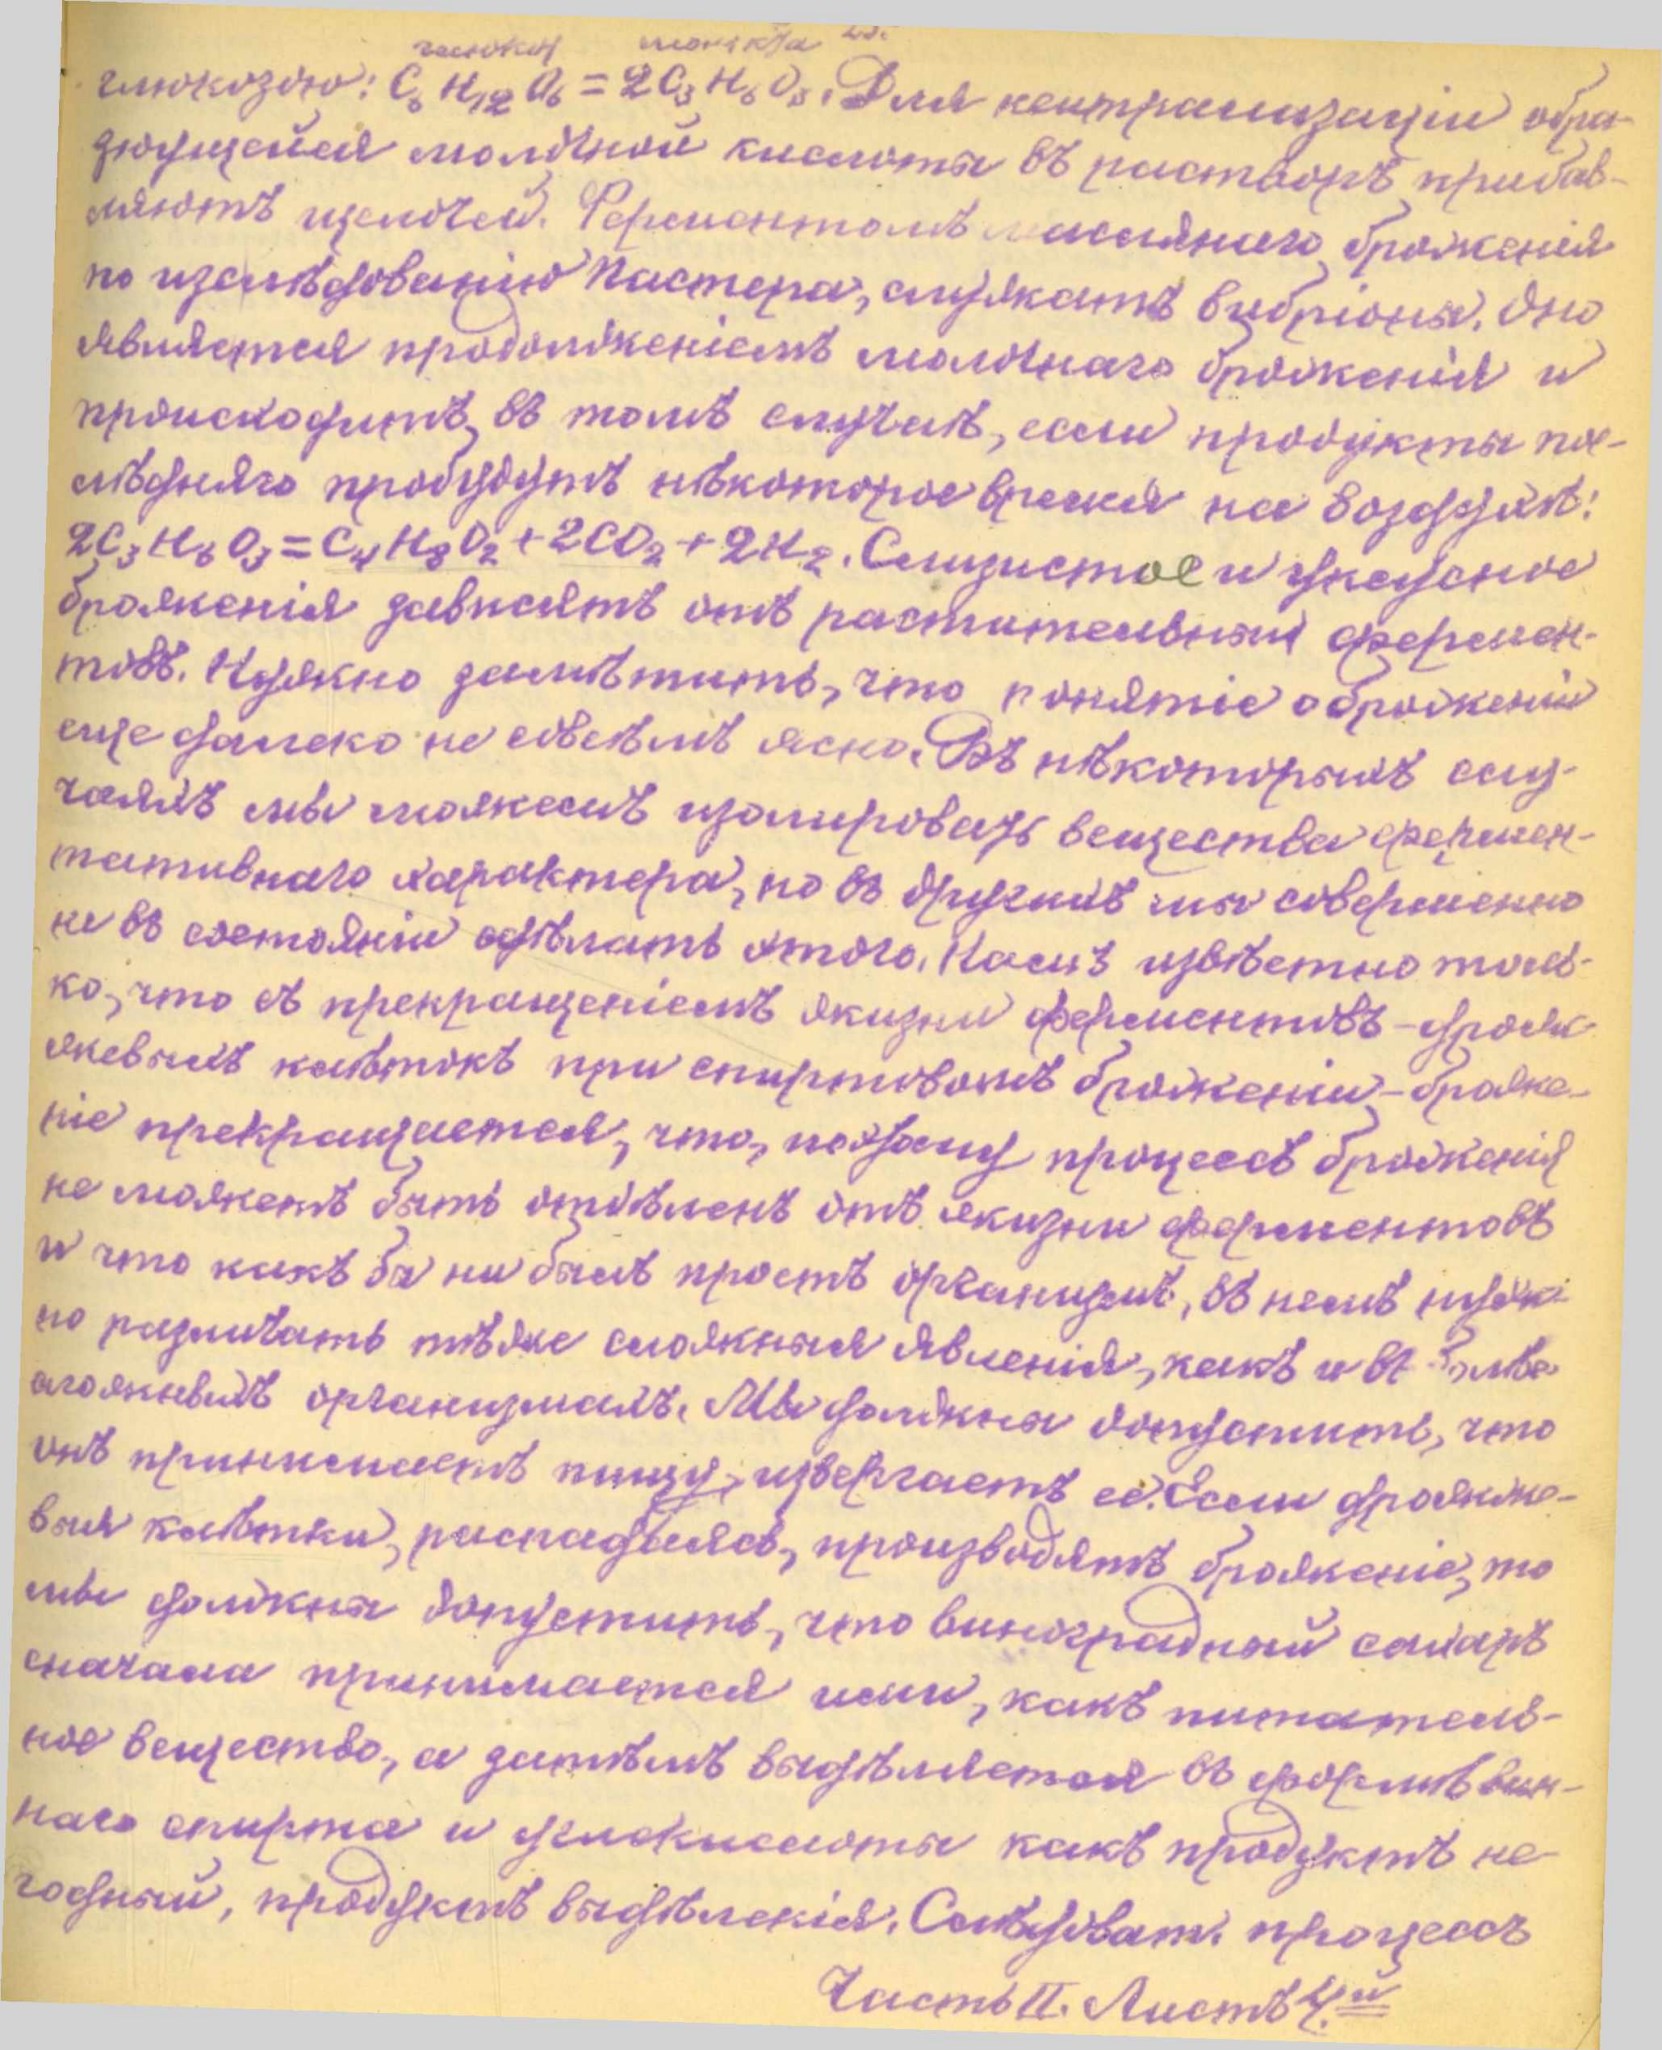 глюкоза
глюкозою: C6H12O6 = 2C3H6O3. Для нейтрализаціи обра-
зующейся молочной кислоты въ растворъ прибав-
ляютъ щелочей. Ферментомъ маслянаго броженія
по изслѣдованію Пастера, служатъ вибріоны. Оно
является продолженіемъ молочнаго броженія и
происходитъ въ томъ случаѣ, если продукты пос-
лѣдняго пробудутъ нѣкоторое время на воздухѣ:
2C3H6O3 = C4H8O2 + 2CO2 + 2H2. Слизистое и уксусное
броженія зависятъ отъ растительныхъ фермен-
товъ. Нужно замѣтить, что понятіе о броженіи
еще далеко не совсѣмъ ясно. Въ нѣкоторыхъ слу-
чаяхъ мы можемъ изолировать вещества фермен-
тативнаго характера, но въ другихъ мы совершенно
не въ состояніи сдѣлать этого. Намъ извѣстно толь-
ко, что съ прекращеніемъ жизни ферментовъ – дрож
жевыхъ клѣтокъ при спиртовомъ броженіи – броже-
ніе прекращается, что, поэтому процессъ броженія
не можетъ быть отдѣленъ отъ жизни ферментовъ
и что какъ бы ни былъ простъ организмъ, въ немъ нуж-
но различать тѣже сложныя явленія, какъ и въ болѣе
сложныхъ организмахъ. Мы должны допустить, что
онъ принимаетъ пищу, извергаетъ ее. Если дрожже-
выя клѣтки, распадаясь, производятъ броженіе, то
мы должны допустить, что виноградный сахаръ
сначала принимается ими, какъ питатель-
ное вещество, а затѣмъ выдѣляется въ формѣ вин-
наго спирта и углекислоты какъ продуктъ не-
годный, продуктъ выдѣленія. Слѣдоват. процессъ
Часть II. Листъ 4.й